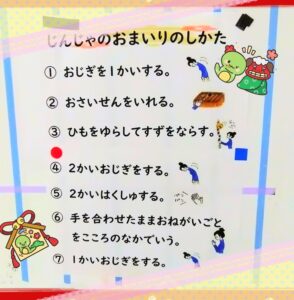 じんじゃのおまいりのしかた
① おじぎを1かいする。
② おさいせんをいれる。
③ ひもをゆらしてすずをならす。
④ 2かいおじぎをする。
⑤ 2かいはくしゅする。
⑥ 手を合わせたままおねがいごと
をこころのなかでいう。
⑦ 1かいおじぎをする。